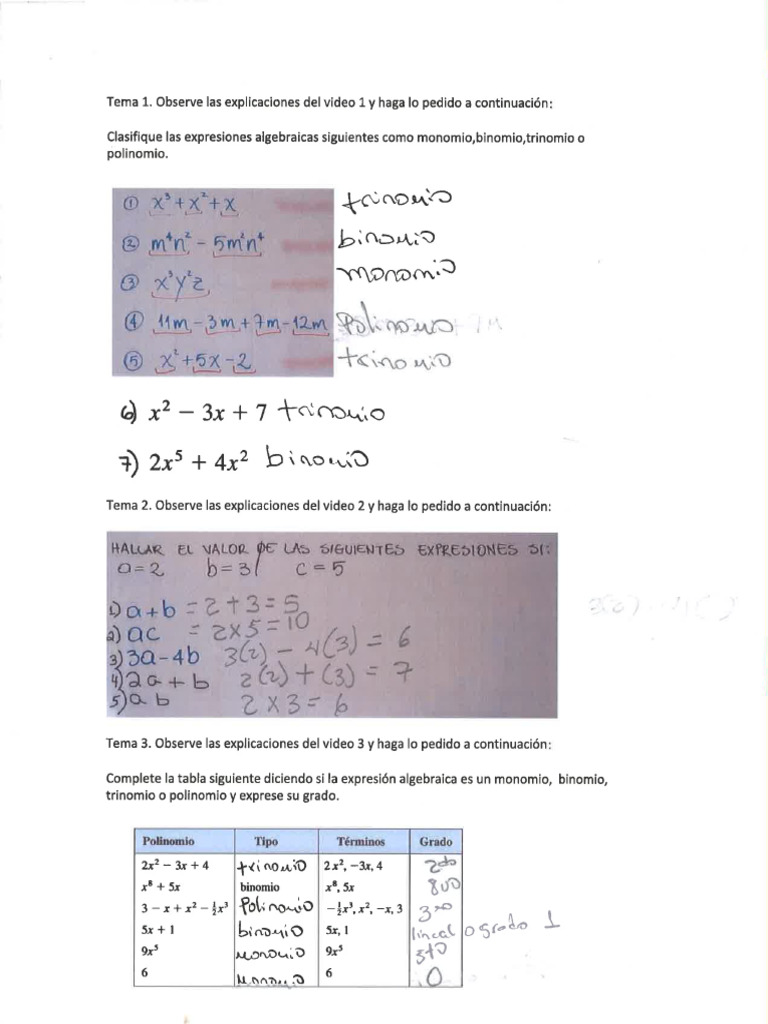 Tema 1. Observe las explicaciones del video 1 y haga lo pedido a continuación:
Clasifique las expresiones algebraicas siguientes como monomio,binomio,trinomio o
polinomio.
① x³+x²+x trinomio
② m⁴n² - 5m²n⁴ binomio
③ x³y²z monomio
④ 11m-3m+7m-12m Polinomio
⑤ x²+5x-2 trinomio
6) x² − 3x + 7 trinomio
7) 2x⁵ + 4x² binomio
Tema 2. Observe las explicaciones del video 2 y haga lo pedido a continuación:
HALLAR EL VALOR DE LAS SIGUIENTES EXPRESIONES SI:
a=2 b=3 c=5
1) a+b = 2+3=5
2) ac = 2x5=10
3) 3a-4b 3(2) - 4(3) = 6
4) 2a+b 2(2)+(3) = 7
5) a b 2 x 3 = 6
Tema 3. Observe las explicaciones del video 3 y haga lo pedido a continuación:
Complete la tabla siguiente diciendo si la expresión algebraica es un monomio, binomio,
trinomio o polinomio y exprese su grado.
Polinomio Tipo Términos Grado
2x² − 3x + 4 trinomio 2x², −3x, 4 2do
x⁸ + 5x binomio x⁸, 5x 8vo
3 − x + x² − ½x³ Polinomio −½x³, x², −x, 3 3ro
5x + 1 binomio 5x, 1 lineal o grado 1
9x⁵ monomio 9x⁵ 5to
6 monomio 6 0